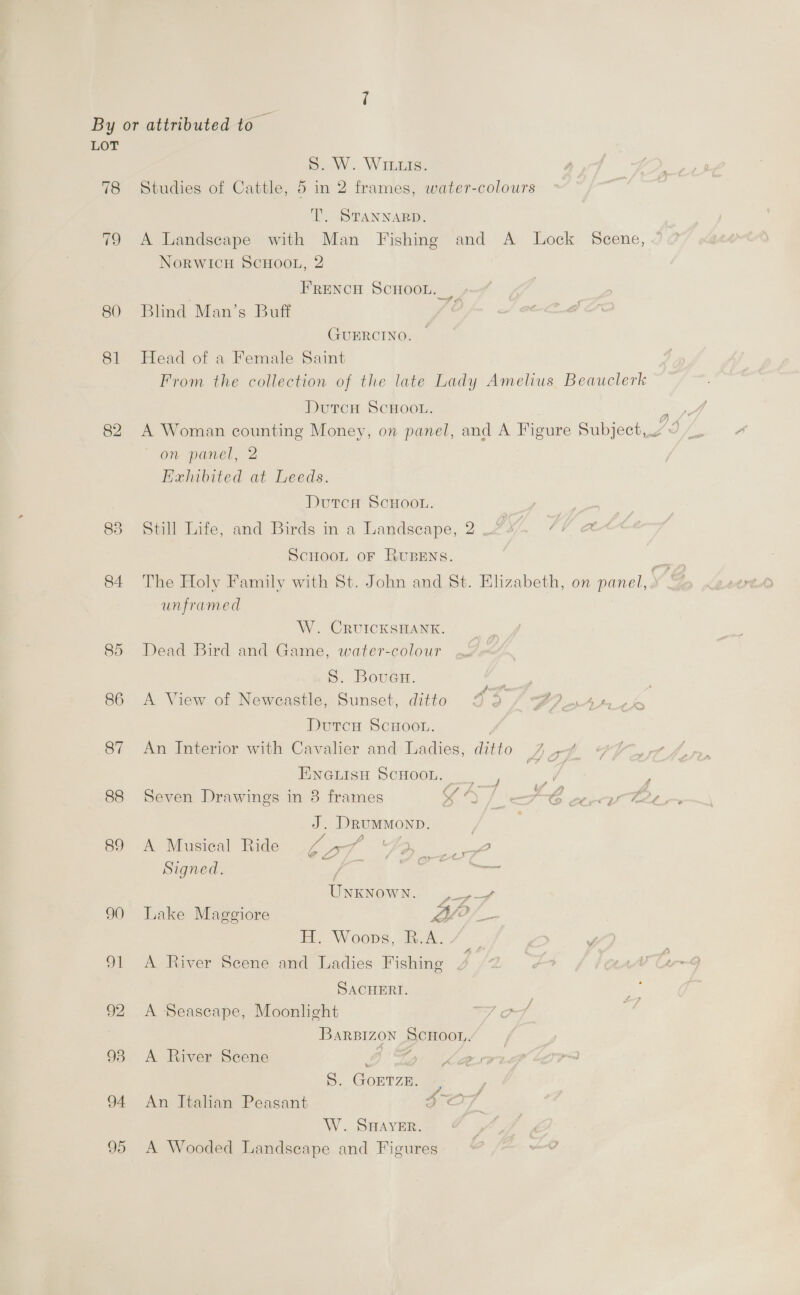 7
By or attributed to
LOT
S. W. WILLIS.
78 Studies of Cattle, 5 in 2 frames, water-colours
T. STANNARD.
79 A Landscape with Man Fishing and A Lock Scene,
NORWICH SCHOOL, 2
FRENCH SCHOOL.
80 Blind Man's Buff
GUERCINO.
81 Head of a Female Saint
From the collection of the late Lady Amelius Beauclerk
DUTCH SCHOOL.
82 A Woman counting Money, on panel, and A Figure Subject,
on panel, 2
Exhibited at Leeds.
DUTCH SCHOOL.
83 Still Life, and Birds in a Landscape, 2
SCHOOL OF RUBENS.
84 The Holy Family with St. John and St. Elizabeth, on panel,
unframed
W. CRUICKSHANK.
85 Dead Bird and Game, water-colour
S. BOUGH.
86 A View of Newcastle, Sunset, ditto
DUTCH SCHOOL.
87 An Interior with Cavalier and Ladies, ditto
ENGLISH SCHOOL.
88 Seven Drawings in 3 frames
J. DRUMMOND.
89 A Musical Ride
Signed.
UNKNOWN.
90 Lake Maggiore
H. WOODS, R.A.
91 A River Scene and Ladies Fishing
SACHERI.
92 A Seascape, Moonlight
BARBIZON SCHOOL.
93 A River Scene
S. GOETZE.
94 An Italian Peasant
W. SHAYER.
95 A Wooded Landscape and Figures